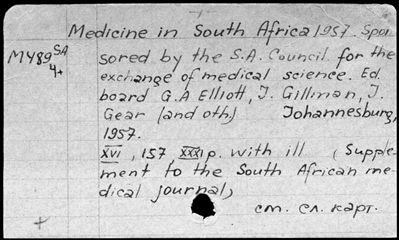 Medicine in South Africa 1957. Spon
M489 SA
4+
sored by the S.A. Council for the
exchange of medical science. Ed.
board G.A Elliott, J. Gillman, J.
Gear (and oth.) Johannesburg,
1957.
XVI, 157, XXXI p. with ill (Supple-
ment to the South African me-
dical journal)
см. сл. карт.